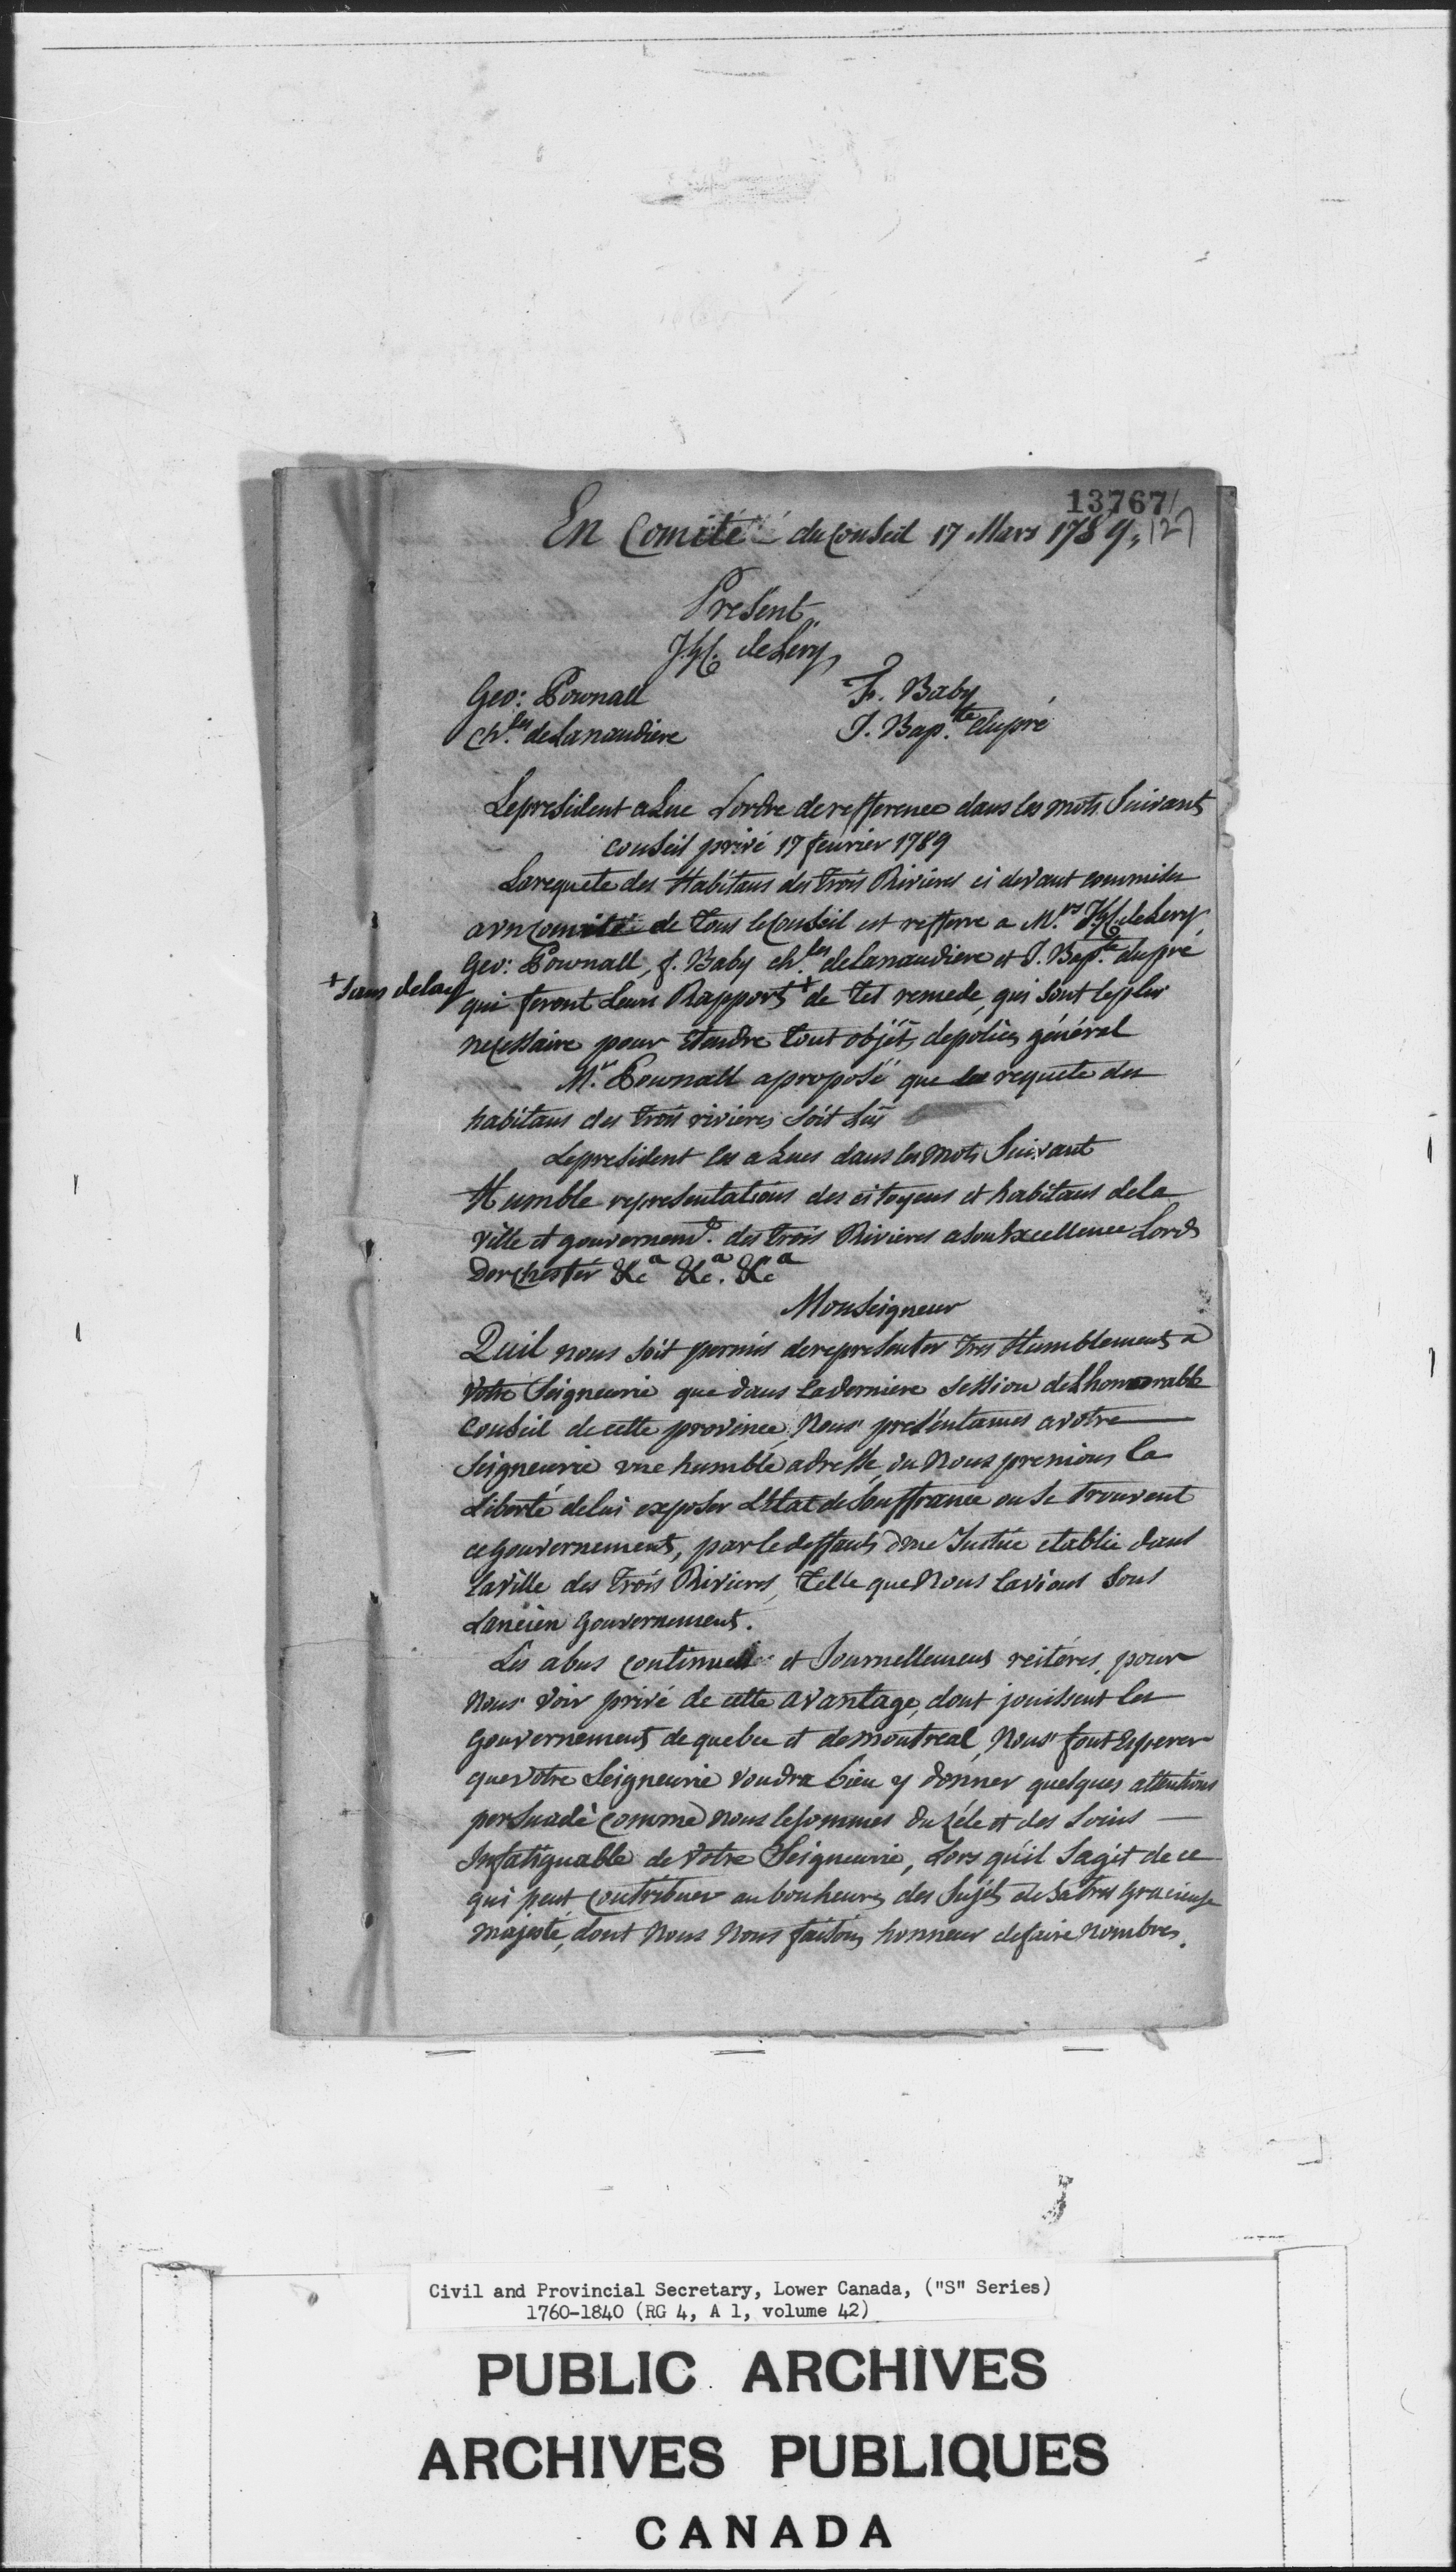 13767
127
En Comité du Conseil 17 Mars 1789,
Présent
J.G.C. deLery
Geo: Pownall F. Baby
Ch.les deLanaudiere J. Bap.te dupré
Le president a Lue L'ordre derefference dans les mots Suivants
conseil privé 17 fevrier 1789
La requete des Habitans des trois Rivieres ci devant commises
a vn Comité de tous le Conseil est refferre a M.rs J.G.C. deLery
Geo: Pownall, f. Baby ch.les delanaudiere et J. Bap.te dupré
+ Sans delay
qui feront Leurs Rapport + de tel remede, qui sont leplus
necessaire pour Etendre tout objèt depolice général
M.r Pownall a proposé que la requete des
habitans des trois rivieres soit Lüe
Le president les a Lues dans les mots Suivant
Humble representations des citoyens et habitans dela
ville et gouvernemt. des trois Rivieres a son Excellence Lord
Dorchester &ca &ca. &ca
Monseigneur
Quil nous soit permis derepresenter tres Humblement a
Votre Seigneurie que dans Laderniere session deLhonnorable
Conseil de cette province, Nous presentames avotre
Seigneurie vne humble adresse, ou Nous prenions la
Liberté delui exposer L'Etat de Souffrance ou se trouvent
ce gouvernement, par le deffaut d'vne Justice etablie dans
laville des trois Rivieres, telle que Nous lavions sous
Lancien gouvernement.
Les abus continuell et Journellement reitérés, pour
Nous voir privé de cette avantage, dont jouissent les
gouvernement de quebec et de montreal, Nous font Esperer
que votre Seigneurie voudra bien y donner quelques attentions
persuadè comme nous lesommes du zéle et des soins
Infatiguable de Votre Seigneurie, Lors qu'il sagit de ce
qui peut, contribuer au bonheur des Sujèts de Satres gracieuse
majesté, dont Nous Nous faisons honneur defaire nombres.
Civil and Provincial Secretary, Lower Canada, ("S" Series)
1760-1840 (RG 4, A 1, volume 42)
PUBLIC ARCHIVES
ARCHIVES PUBLIQUES
CANADA